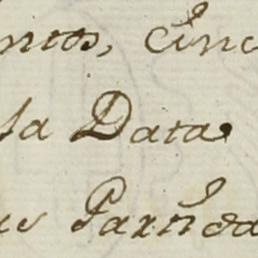 ntos, Cinc
la Data
us Partied